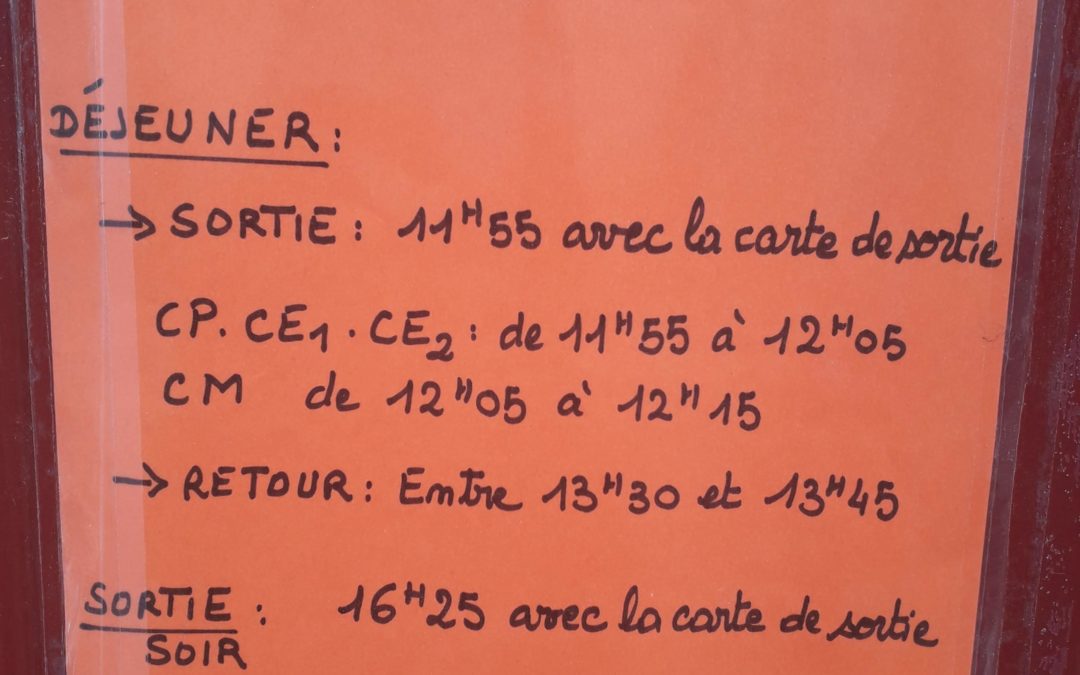 DÉJEUNER :
→ SORTIE : 11H55 avec la carte de sortie
CP. CE1 . CE2 : de 11H55 à 12H05
CM de 12H05 à 12H15
→ RETOUR : Entre 13H30 et 13H45
SORTIE : 16H25 avec la carte de sortie
SOIR